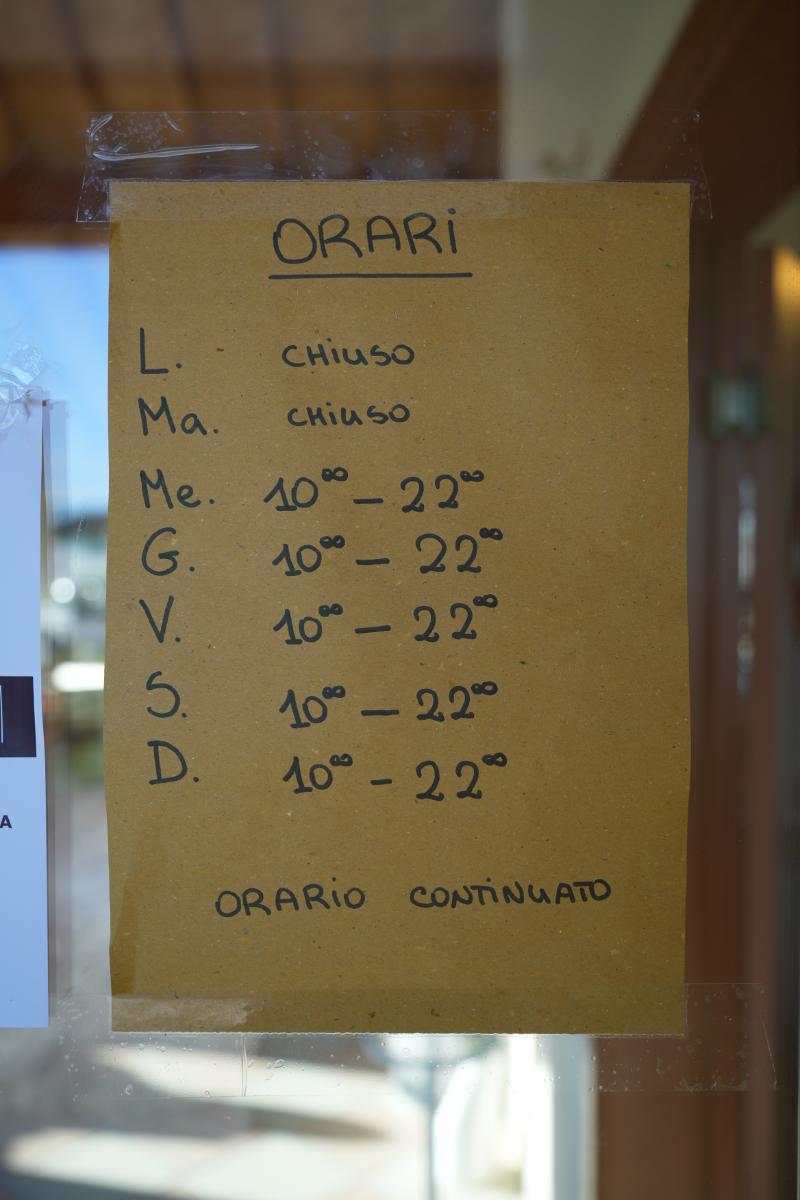 ORARI
L. CHIUSO
Ma. CHIUSO
Me. 10⁰⁰ - 22⁰⁰
G. 10⁰⁰ - 22⁰⁰
V. 10⁰⁰ - 22⁰⁰
S. 10⁰⁰ - 22⁰⁰
D. 10⁰⁰ - 22⁰⁰
ORARIO CONTINUATO